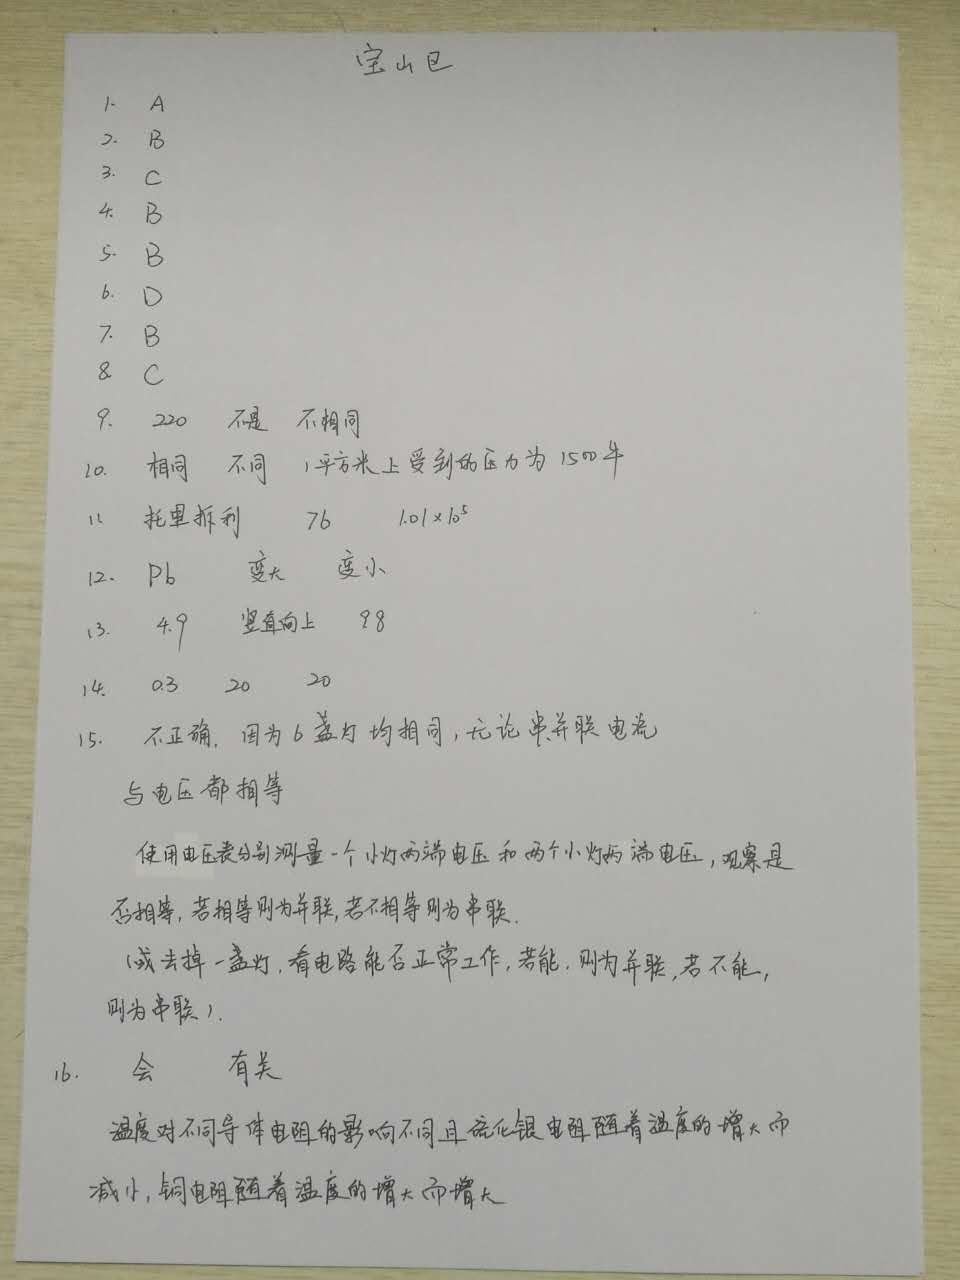 宝山区
1. A
2. B
3. C
4. B
5. B
6. D
7. B
8. C
9. 220 不是 不相同
10. 相同 不同 1平方米上受到的压力为1500牛
11 托里拆利 76 1.01×10⁵
12. Pb 变大 变小
13. 4.9 竖直向上 9.8
14. 0.3 20 20
15. 不正确, 因为6盏灯均相同, 无论串并联电流
与电压都相等
使用电压表分别测量一个小灯两端电压和两个小灯两端电压, 观察是
否相等, 若相等则为并联, 若不相等则为串联.
(或去掉一盏灯, 看电路能否正常工作, 若能, 则为并联, 若不能,
则为串联).
16. 会 有关
温度对不同导体电阻的影响不同且硫化银电阻随着温度的增大而
减小, 铜电阻随着温度的增大而增大